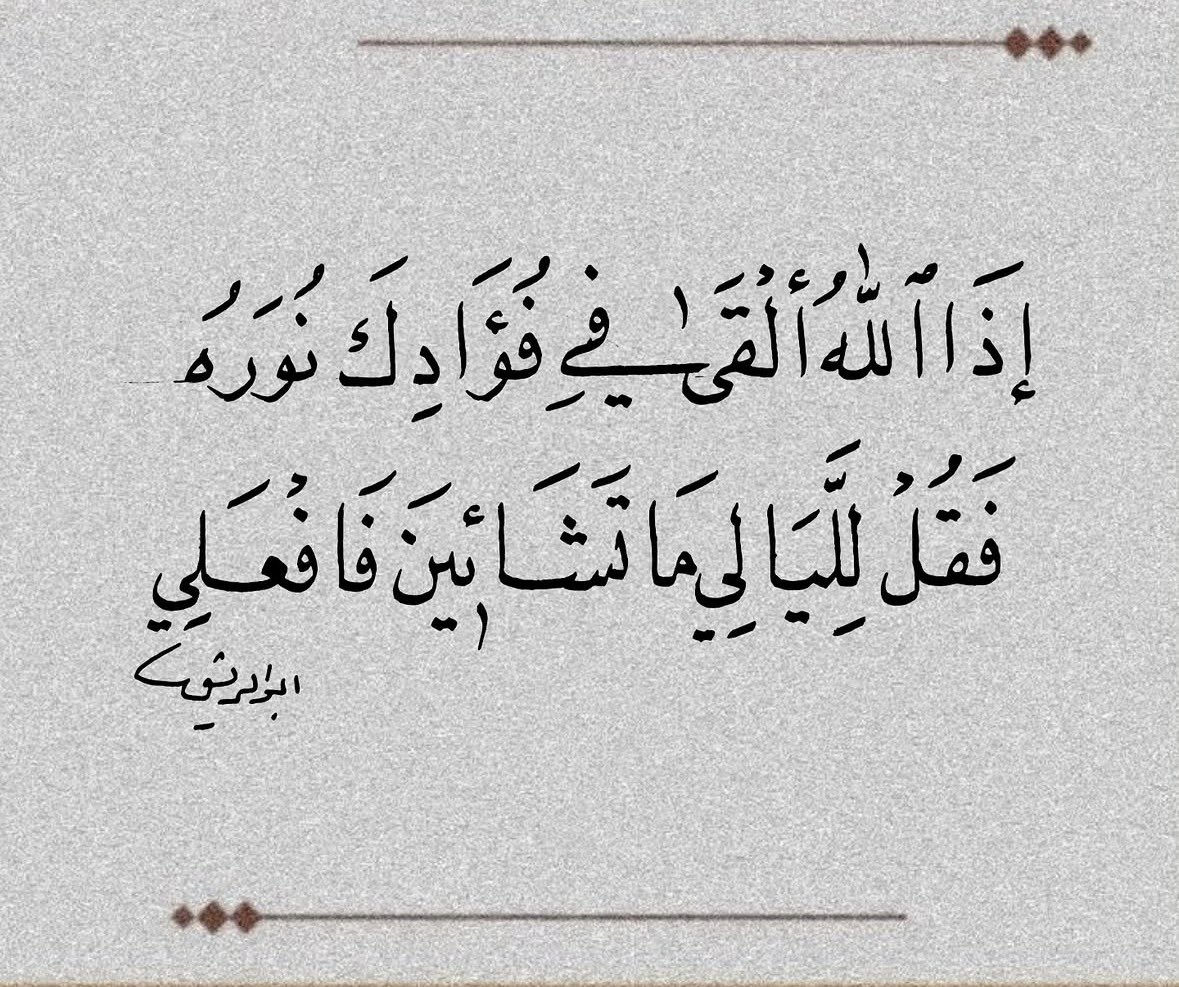 إِذَا ٱللَّٰهُ أَلْقَىٰ فِي فُؤَادِكَ نُورَهُ
فَقُلْ لِلَّيَالِي مَا تَشَائِينَ فَافْعَلِي